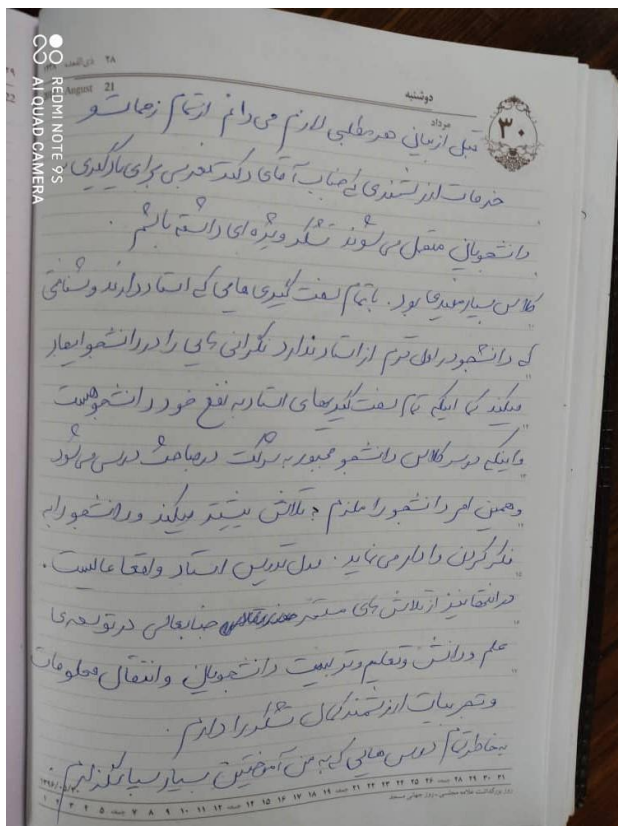 ۲۸ ذی‌القعده
August 21
دوشنبه
مرداد
۳۰
REDMI NOTE 9S
AI QUAD CAMERA
قبل از بیان هر مطلبی لازم می دانم از تمام زحمات و
خدمات ارزشمندی که جناب آقای دکتر برای یادگیری
دانشجویان متقبل می شوند تشکر ویژه ای داشته باشم.
کلاس بسیار مفیدی بود. با تمام سخت گیری هایی که استاد دارند و شناختی
که دانشجو در اول ترم از استاد ندارد نگرانی هایی را در دانشجو ایجاد
میکند کما اینکه تمام سخت گیریهای استاد به نفع خود دانشجوهست
و اینکه در سر کلاس دانشجو مجبور به شرکت در مباحث درسی می شود
و همین امر دانشجو را ملزم به تلاش بیشتر میکند و دانشجو را به
فکر کردن وادار می نماید. مدل تدریس استاد واقعا عالیست.
در انتها نیز از تلاش های مستمر جنابعالی در توسعه ی
علم و دانش و تعلیم و تربیت دانشجویان و انتقال معلومات
و تجربیات ارزشمند کمال تشکر را دارم.
به خاطر تمام درس هایی که به من آموختین بسیار سپاسگذارم.
۱ ۲ ۳ ۴ ۵ ۶ جمعه ۷ ۸ ۹ ۱۰ ۱۱ ۱۲ ۱۳ جمعه ۱۴ ۱۵ ۱۶ ۱۷ ۱۸ ۱۹ ۲۰ جمعه ۲۱ ۲۲ ۲۳ ۲۴ ۲۵ ۲۶ جمعه ۲۸ ۲۹ ۳۰ ۳۱
روز بزرگداشت علامه مجلسی ـ روز جهانی مسجد